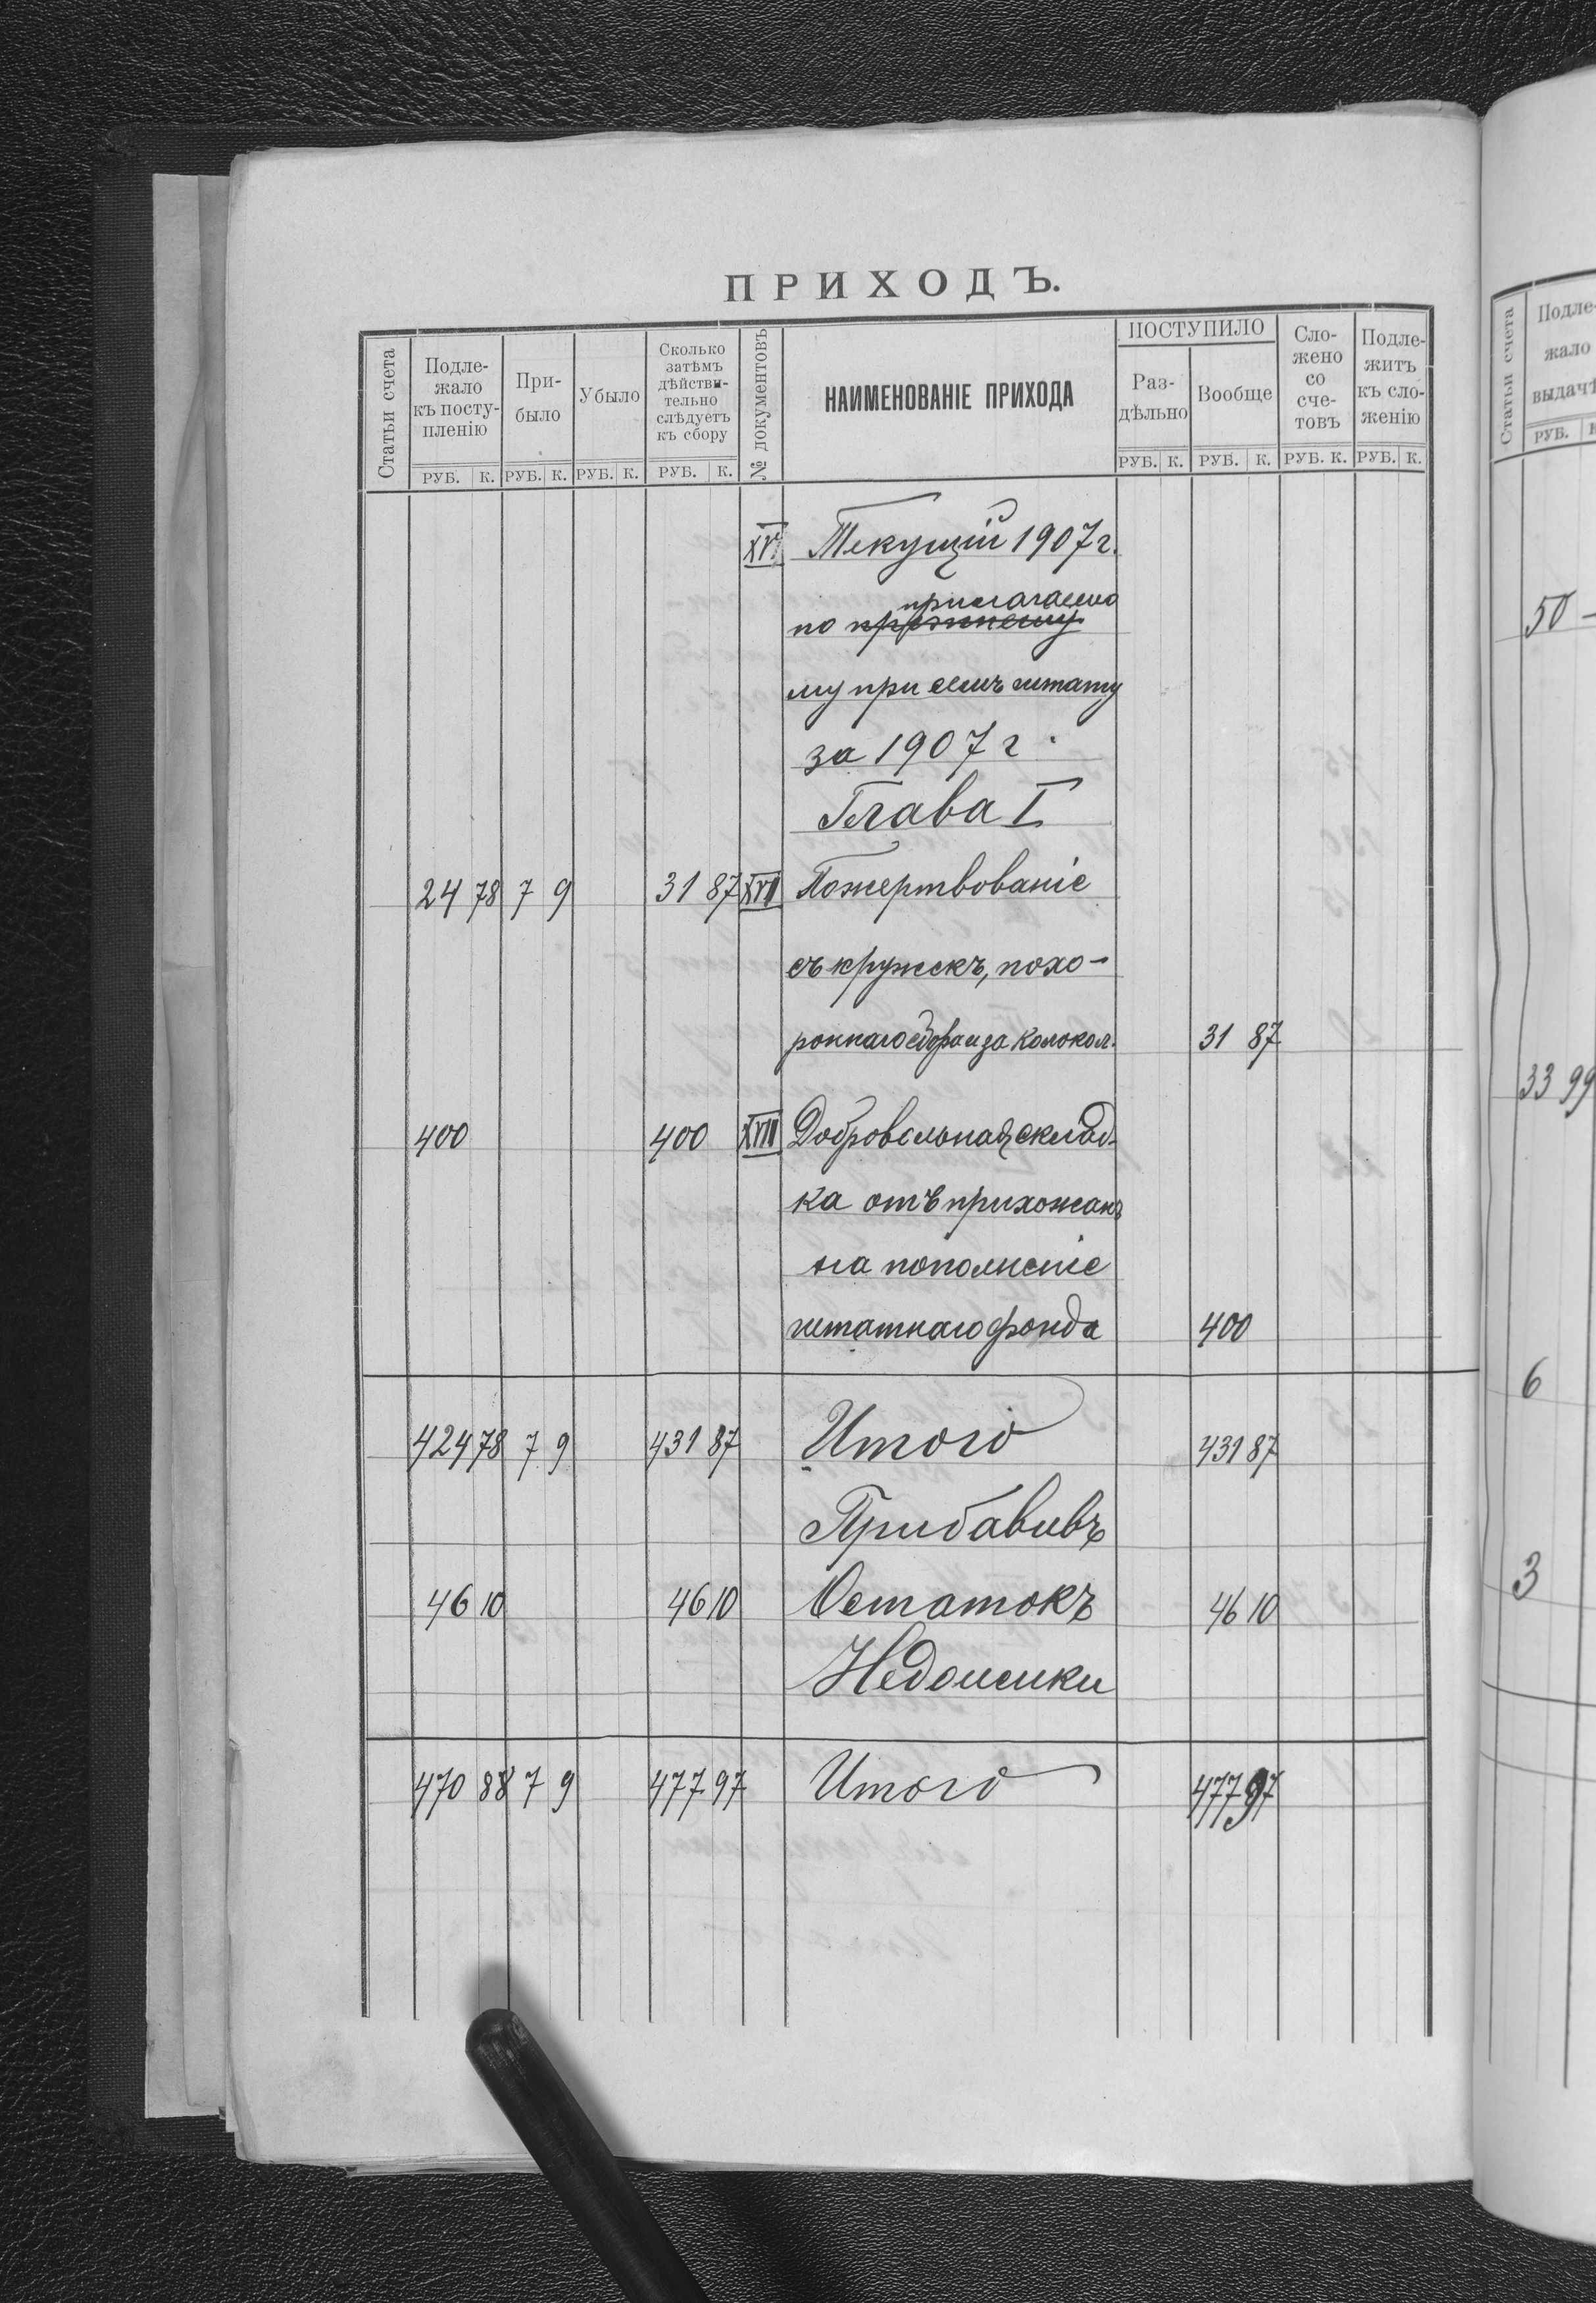 ПРИХОДЪ.
Статьи счета
Подле-
жало
къ посту-
пленію
При-
было
Убыло
Сколько
затѣмъ
дѣйстви-
тельно
слѣдуетъ
къ сбору
№ документовъ
НАИМЕНОВАНІЕ ПРИХОДА
ПОСТУПИЛО
Раз-
дѣльно
Вообще
Сло-
жено
со
сче-
товъ
Подле-
житъ
къ сло-
женію
РУБ. К. РУБ. К. РУБ. К. РУБ. К. РУБ. К. РУБ. К. РУБ. К. РУБ. К.
XV. Текущій 1907 г.
прилагаемо
по прежнему
му при семъ штату
за 1907 г.
Глава I
24 78 7 9 31 87 XVI Пожертвованіе
съ кружекъ, похо-
роннаго сбора и за колокол. 31 87
400 400 XVII Добровольная склад-
ка отъ прихожанъ
на пополненіе
штатнаго фонда 400
424 78 7 9 431 87 Итого 431 87
Прибавивъ
46 10 46 10 Остатокъ 46 10
Недоимки
470 88 7 9 477 97 Итого 477 97
Статьи счета
Подле-
жало
выдачѣ
РУБ.
50 -
33 99
6
3